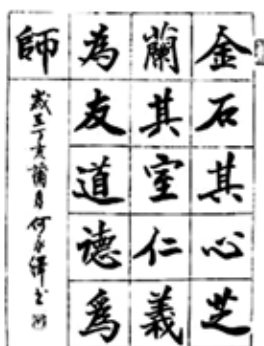 金石其心芝
蘭其室仁義
為友道德爲
師
歲在丁亥蘭月何永鐸書